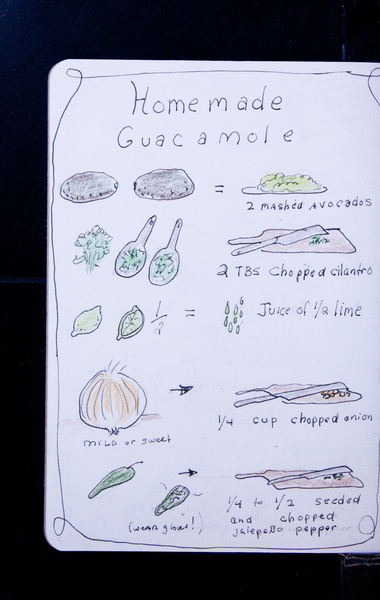 Homemade
Guacamole
=
2 mashed Avocados
2 TBS Chopped cilantro
1/2 = Juice of 1/2 lime
1/4 cup chopped onion
MILD or sweet
1/4 to 1/2 seeded
and chopped
jalepeño pepper
(wear gloves!)